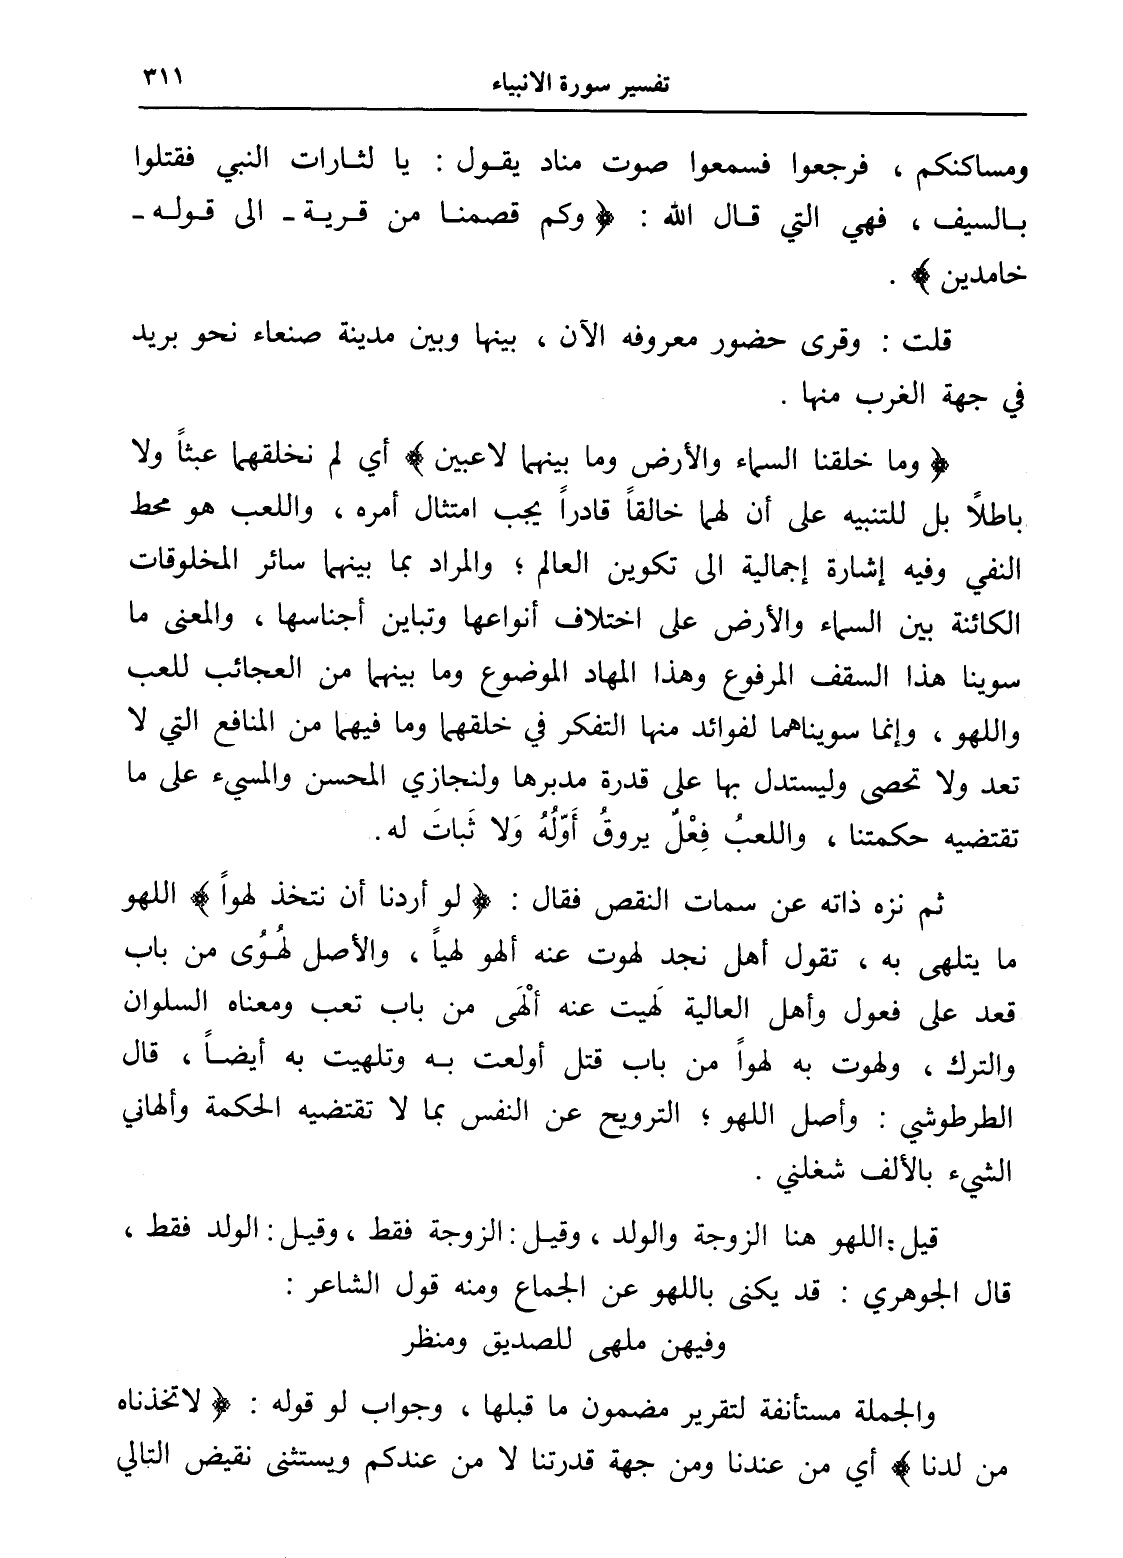 تفسير سورة الانبياء ٣١١
ومساكنكم ، فرجعوا فسمعوا صوت مناد يقـول : يا لثـارات النبي فقتلوا
بـالسيف ، فهي التي قـال الله : ﴿ وكم قصمنـا من قـريـة ـ الى قـولـه ـ
خامدين ﴾ .
قلت : وقرى حضور معروفه الآن ، بينها وبين مدينة صنعاء نحو بريد
في جهة الغرب منها .
﴿ وما خلقنا السماء والأرض وما بينهما لاعبين ﴾ أي لم نخلقهما عبثاً ولا
باطلاً بل للتنبيه على أن لهما خالقاً قادراً يجب امتثال أمره ، واللعب هو محط
النفي وفيه إشارة إجمالية الى تكوين العالم ؛ والمراد بما بينهما سائر المخلوقات
الكائنة بين السماء والأرض على اختلاف أنواعها وتباين أجناسها ، والمعنى ما
سوينا هذا السقف المرفوع وهذا المهاد الموضوع وما بينهما من العجائب للعب
واللهو ، وإنما سويناهما لفوائد منها التفكر في خلقهما وما فيهما من المنافع التي لا
تعد ولا تحصى وليستدل بها على قدرة مدبرها ولنجازي المحسن والمسيء على ما
تقتضيه حكمتنا ، واللعبُ فِعْلٌ يروقُ أَوّلُهُ وَلا ثَباتَ له .
ثم نزه ذاته عن سمات النقص فقال : ﴿ لو أردنا أن نتخذ لهواً ﴾ اللهو
ما يتلهى به ، تقول أهل نجد لهوت عنه ألهو لهياً ، والأصل لُهُوَّى من باب
قعد على فعول وأهل العالية لَهيت عنه ألْهَى من باب تعب ومعناه السلوان
والترك ، ولهوت به لهواً من باب قتل أولعت بـه وتلهيت به أيضـاً ، قال
الطرطوشي : وأصل اللهو ؛ الترويح عن النفس بما لا تقتضيه الحكمة وألهاني
الشيء بالألف شغلني .
قيل : اللهو هنا الزوجة والولد ، وقيـل : الزوجة فقط ، وقيـل : الولد فقط ،
قال الجوهري : قد يكنى باللهو عن الجماع ومنه قول الشاعر :
وفيهن ملهى للصديق ومنظر
والجملة مستأنفة لتقرير مضمون ما قبلها ، وجواب لو قوله : ﴿ لاتخذناه
من لدنا ﴾ أي من عندنا ومن جهة قدرتنا لا من عندكم ويستثنى نقيض التالي